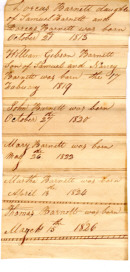 Dorcas Barnett daughter
of Samuel Barnett and
Dorcas Barnett was born
October 27 1815
William Gibson Barnett
Son of Samuel and
Barnett was born the 7
1819
John Barnett was born
October 27 1820
Mary Barnett was born
26 1822
Martha Barnett was born
March 18 1824
Thomas Barnett was born
March 15 1826